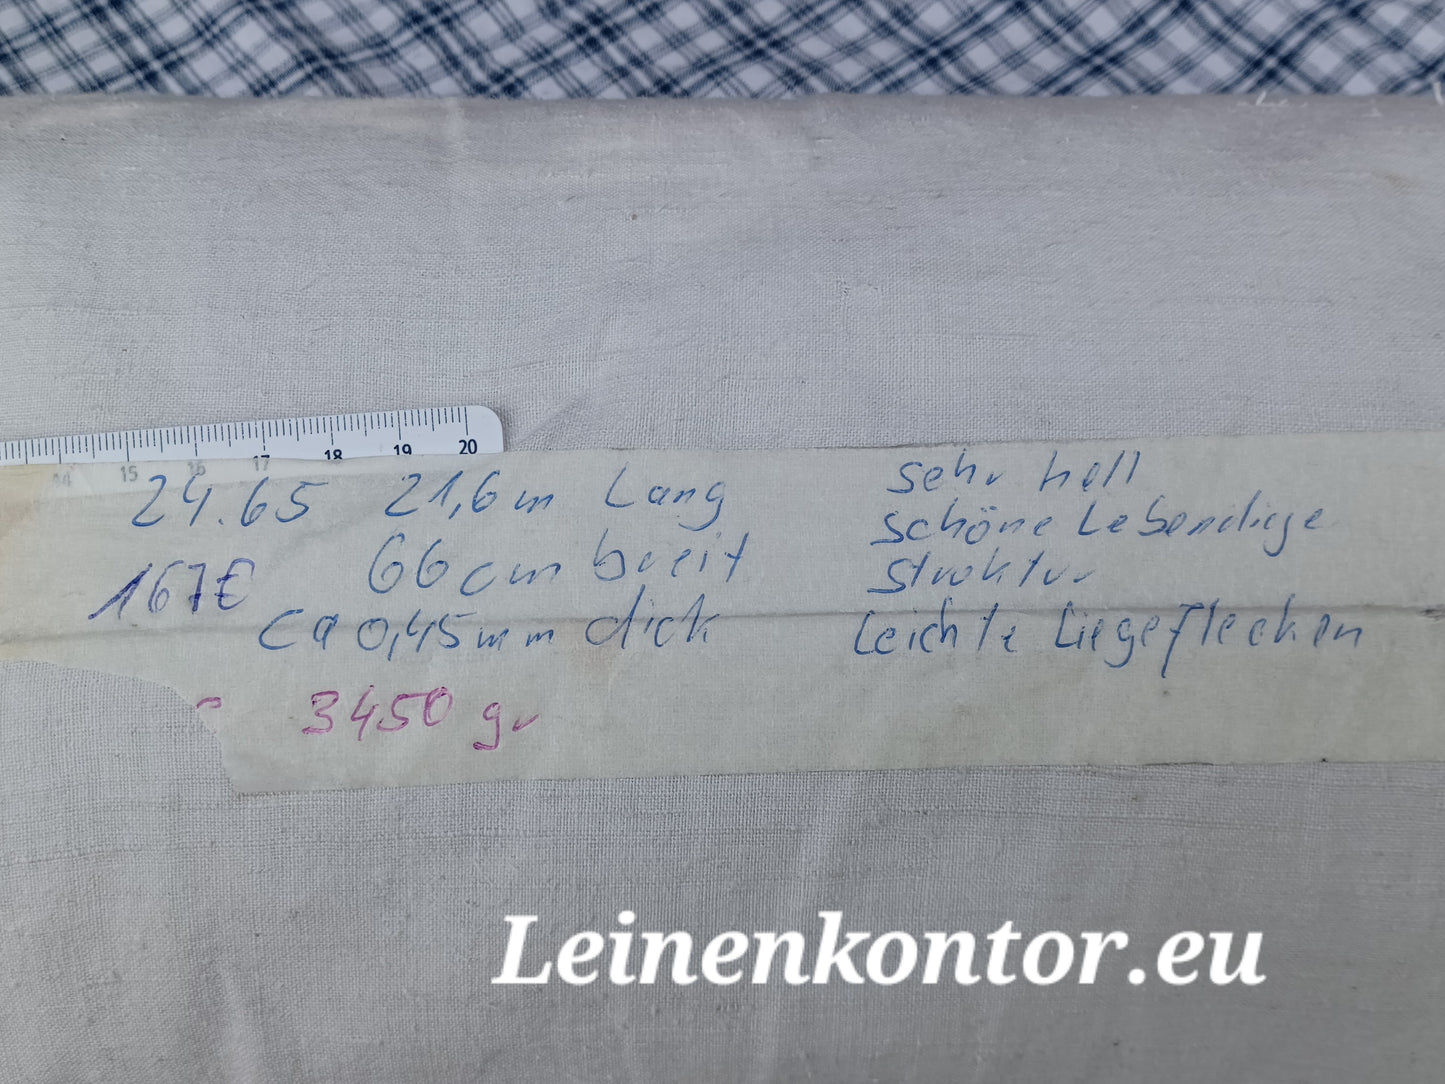 14 15 16 17 18 19 20
24.65 21,6m Lang
167€ 66cm breit
ca 0,45mm dick
3450 gr
sehr hell
schöne Lebendige
Struktur
Leichte Liegeflecken
Leinenkontor.eu